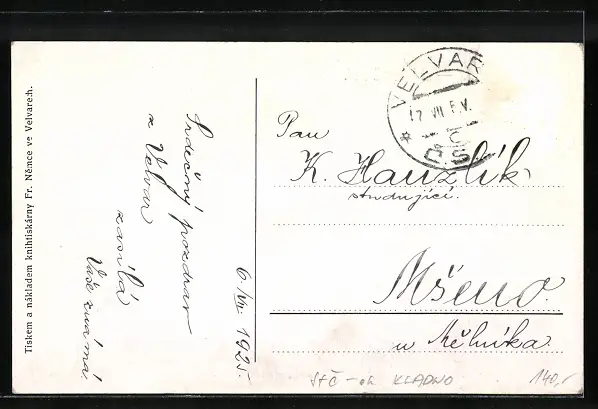 Tiskem a nákladem knihtiskárny Fr. Němce ve Velvarech.
Srdečný pozdrav
z Velvar
zasílá
Vaše známá.
6/VII 1925.
VELVAR
17 VII
ČS
Pan
K. Hauzlík
studující.
Mšeno
u Mělníka.
STČ - ok KLADNO
140,-